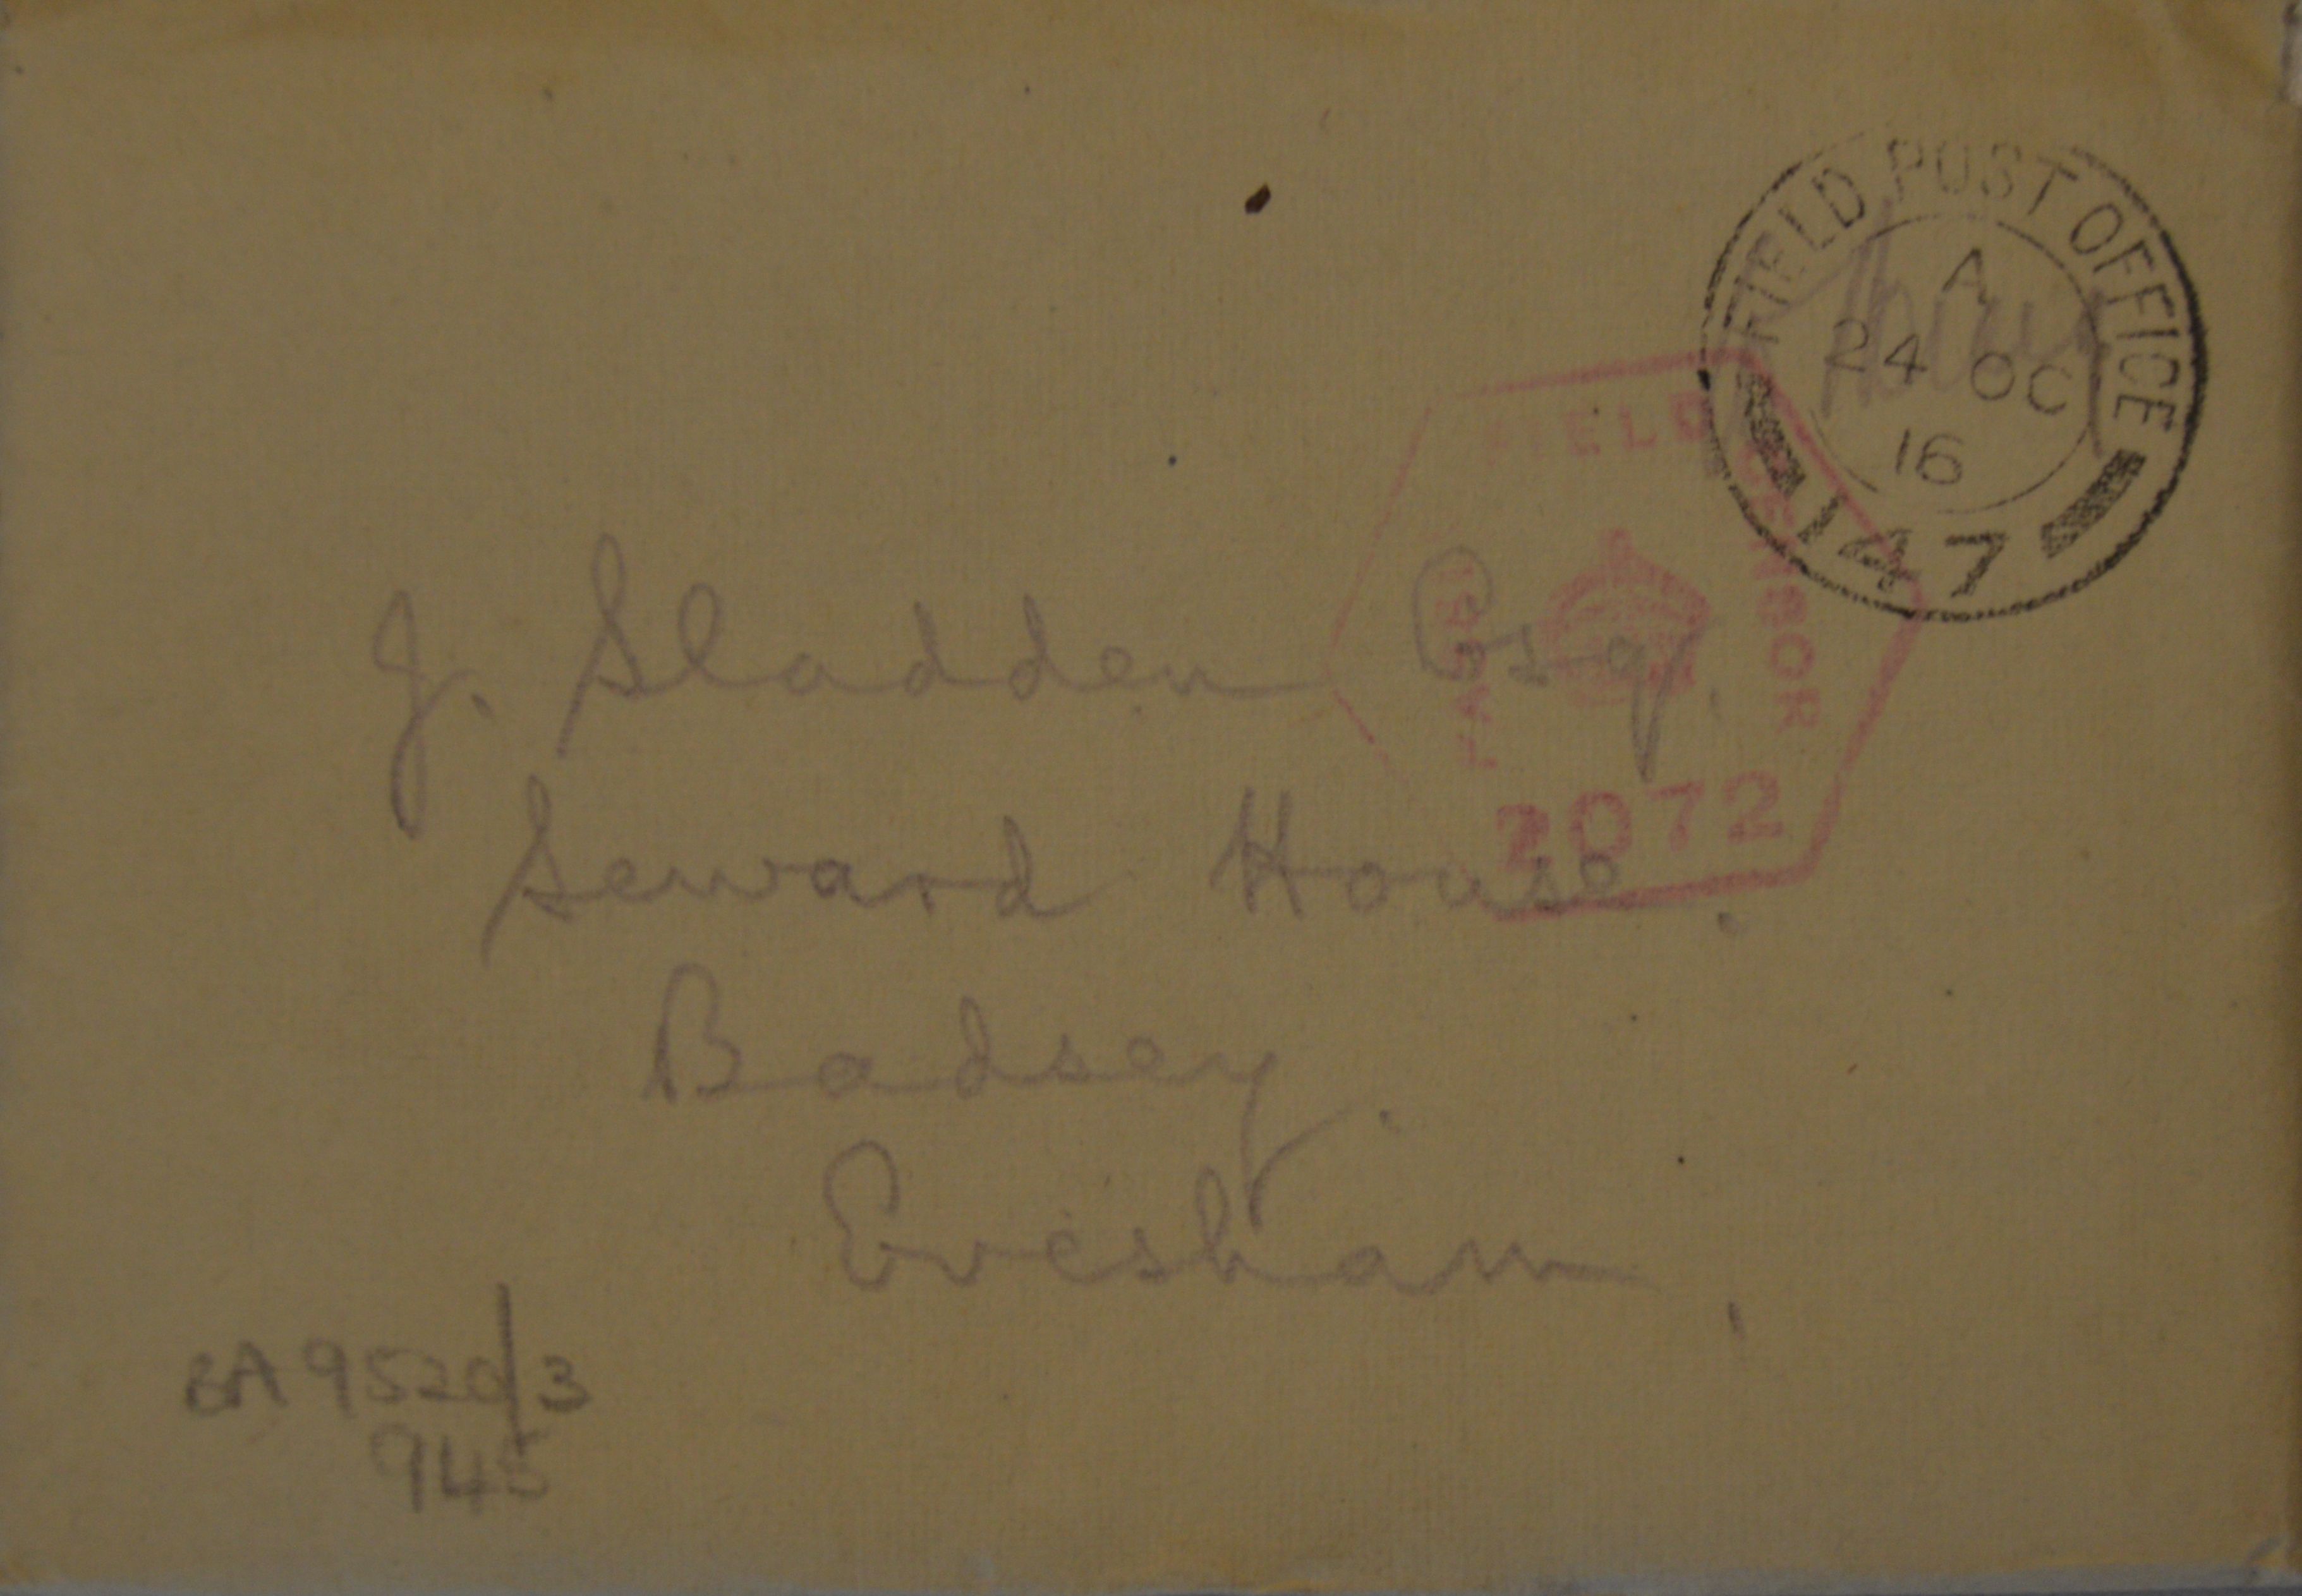 FIELD POST OFFICE
A
24 OC
16
147
FIELD CENSOR
2072
J. Sladden Esq.
Seward House.
Badsey.
Evesham.
BA 9520/3
945